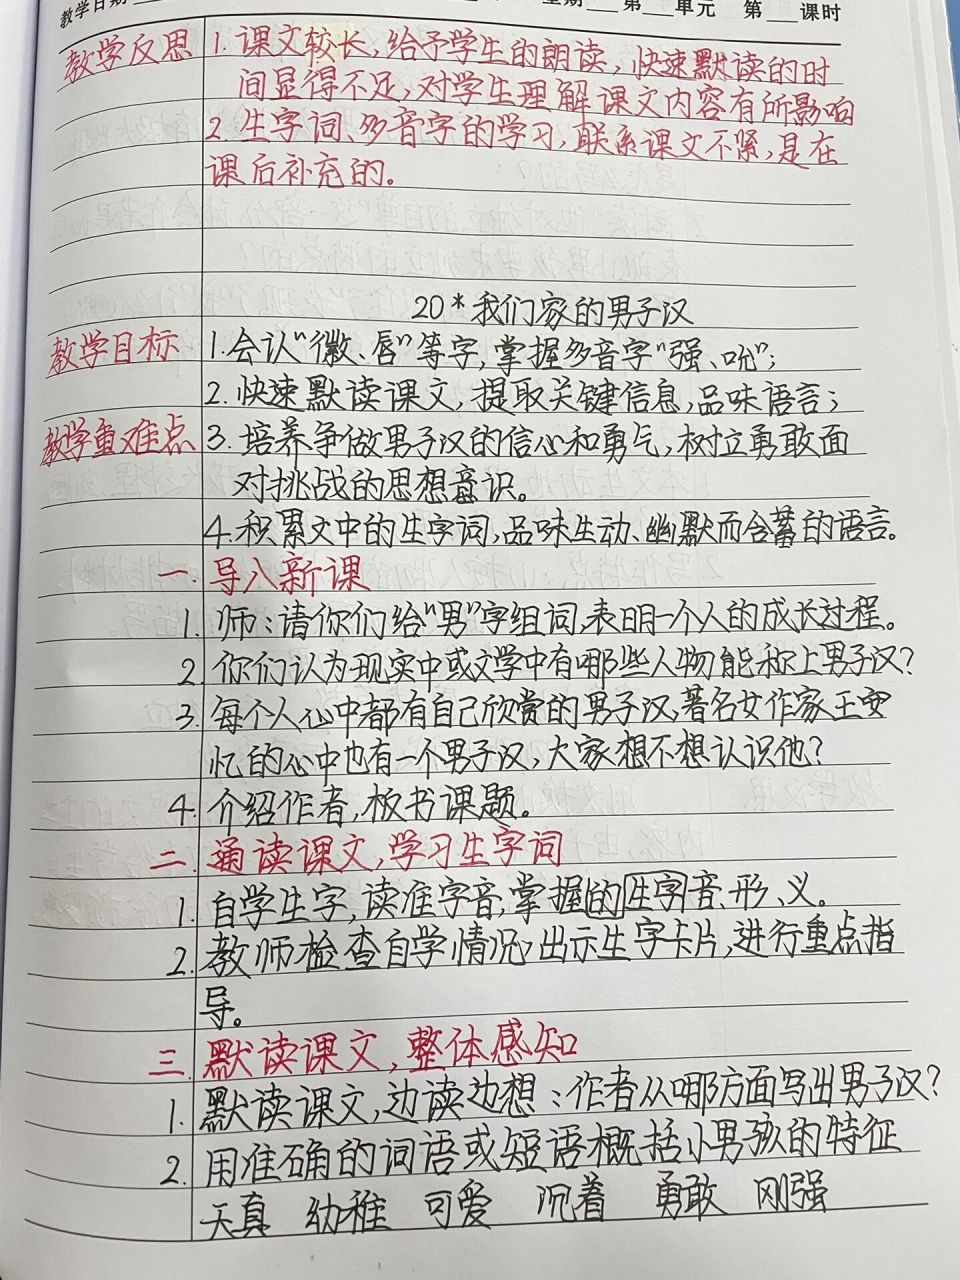 教学日期 星期 第 单元 第 课时
教学反思 1. 课文较长，给予学生的朗读，快速默读的时
间显得不足，对学生理解课文内容有所影响
2. 生字词、多音字的学习，联系课文不紧，是在
课后补充的。
20*我们家的男子汉
教学目标 1. 会认“徽、唇”等字，掌握多音字“强、吭”；
2. 快速默读课文，提取关键信息，品味语言；
教学重难点 3. 培养争做男子汉的信心和勇气，树立勇敢面
对挑战的思想意识。
4. 积累文中的生字词，品味生动、幽默而含蓄的语言。
一. 导入新课
1. 师：请你们给“男”字组词，表明一个人的成长过程。
2. 你们认为现实中或文学中有哪些人物能称上男子汉？
3. 每个人心中都有自己欣赏的男子汉，著名女作家王安
忆的心中也有一个男子汉，大家想不想认识他？
4. 介绍作者，板书课题。
二. 通读课文，学习生字词
1. 自学生字，读准字音，掌握的生字音、形、义。
2. 教师检查自学情况，出示生字卡片，进行重点指
导。
三. 默读课文，整体感知
1. 默读课文，边读边想：作者从哪方面写出男子汉？
2. 用准确的词语或短语概括小男孩的特征
天真 幼稚 可爱 沉着 勇敢 刚强